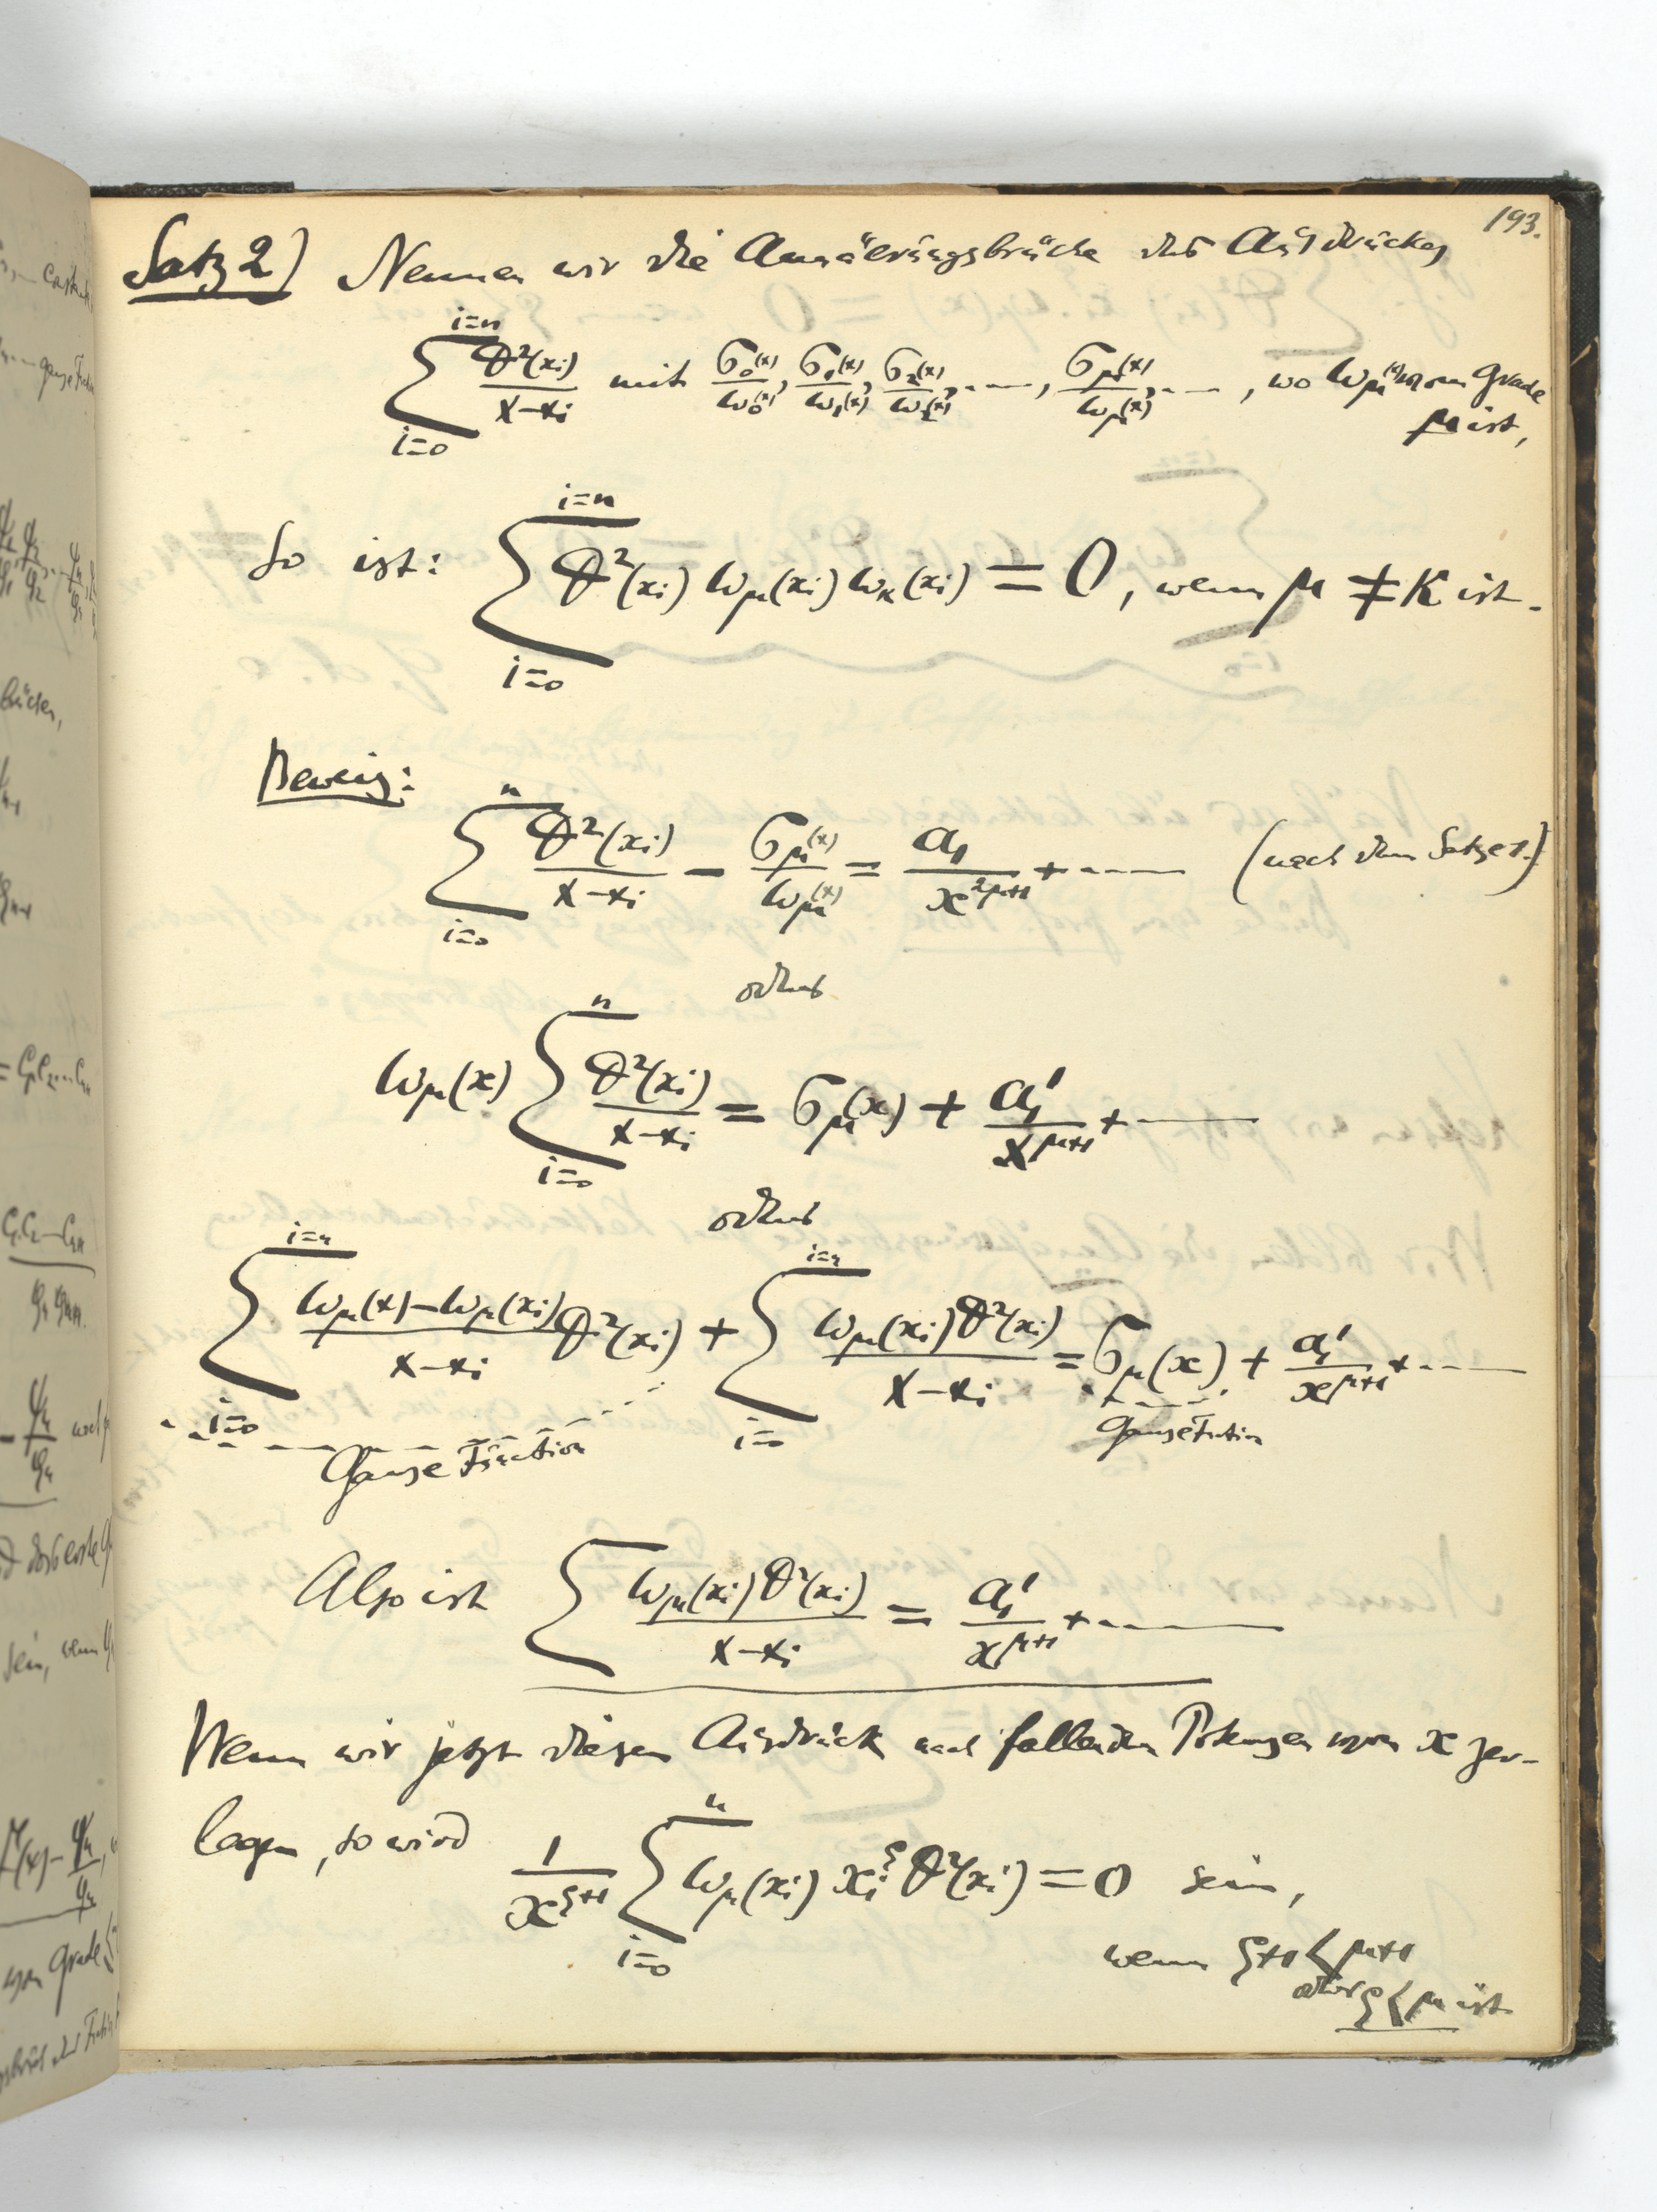 193.
Satz 2) Nennen wir die Annäerungsbrüche des Ausdruckes
\sum_{i=0}^{i=n} \frac{\theta^2(x_i)}{x-x_i} mit \frac{\sigma_0(x)}{\omega_0(x)}, \frac{\sigma_1(x)}{\omega_1(x)}, \frac{\sigma_2(x)}{\omega_2(x)}, ----, \frac{\sigma_\mu(x)}{\omega_\mu(x)}, ---, wo \omega_\mu(x) vom Grade
μ ist,
So ist: \sum_{i=0}^{i=n} \theta^2(x_i) \omega_\mu(x_i) \omega_\kappa(x_i) = 0, wenn μ ≠ κ ist.
Beweis:
\sum_{i=0}^{n} \frac{\theta^2(x_i)}{x-x_i} - \frac{\sigma_\mu(x)}{\omega_\mu(x)} = \frac{a_1}{x^{2\mu+1}} + ---- (nach dem Satze 1.)
oder
\omega_\mu(x) \sum_{i=0}^{n} \frac{\theta^2(x_i)}{x-x_i} = \sigma_\mu(x) + \frac{a_1'}{x^{\mu+1}} + ----
oder
\sum_{i=0}^{i=n} \frac{\omega_\mu(x)-\omega_\mu(x_i)}{x-x_i} \theta^2(x_i) + \sum_{i=0}^{i=n} \frac{\omega_\mu(x_i)\theta^2(x_i)}{x-x_i} = \sigma_\mu(x) + \frac{a_1'}{x^{\mu+1}} + ----
Ganze Function Ganze Function
Also ist \sum \frac{\omega_\mu(x_i)\theta^2(x_i)}{x-x_i} = \frac{a_1'}{x^{\mu+1}} + ----
Wenn wir jetzt diesen Ausdruck nach fallenden Potenzen von x zer-
legen, so wird \frac{1}{x^{\xi+1}} \sum_{i=0}^{n} \omega_\mu(x_i) x_i^\xi \theta^2(x_i) = 0 sein,
wenn ξ+1 < μ+1
oder ξ < μ ist